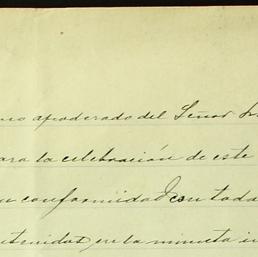 mo apoderado del Señor
para la celebración de este
conformidad con toda
ntenidas en la minuta in